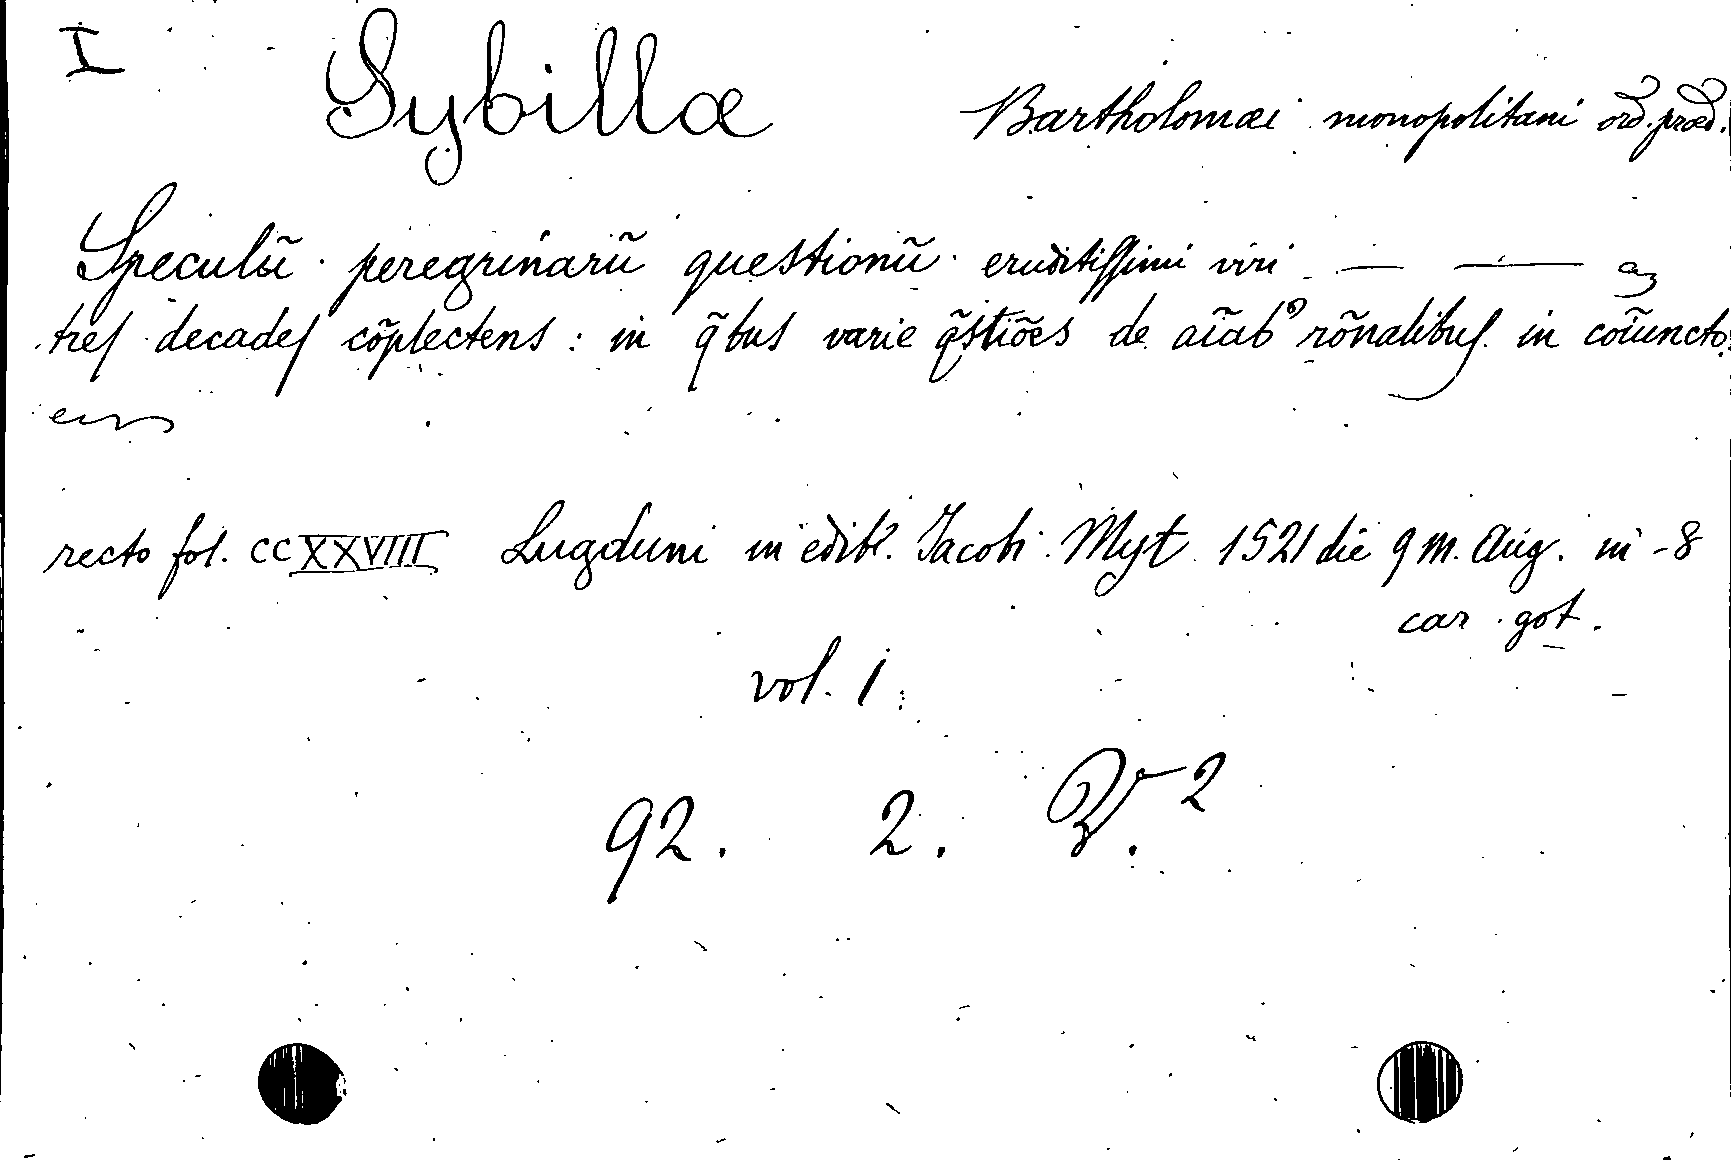 I Sybillæ Bartholomæi monopolitani ord. præd.
Speculũ peregrinarũ questionũ eruditiſſimi viri — —
treſ decadeſ cõplectens : in q̃bus varie q̃stiões de aĩab⁹ rõnalibuſ in cõiuncto
recto fol. CCXXVIII Lugduni in edib. Jacobi Myt 1521 die 9 m. Aug. in-8
car. got.
vol. 1
92. 2. 2